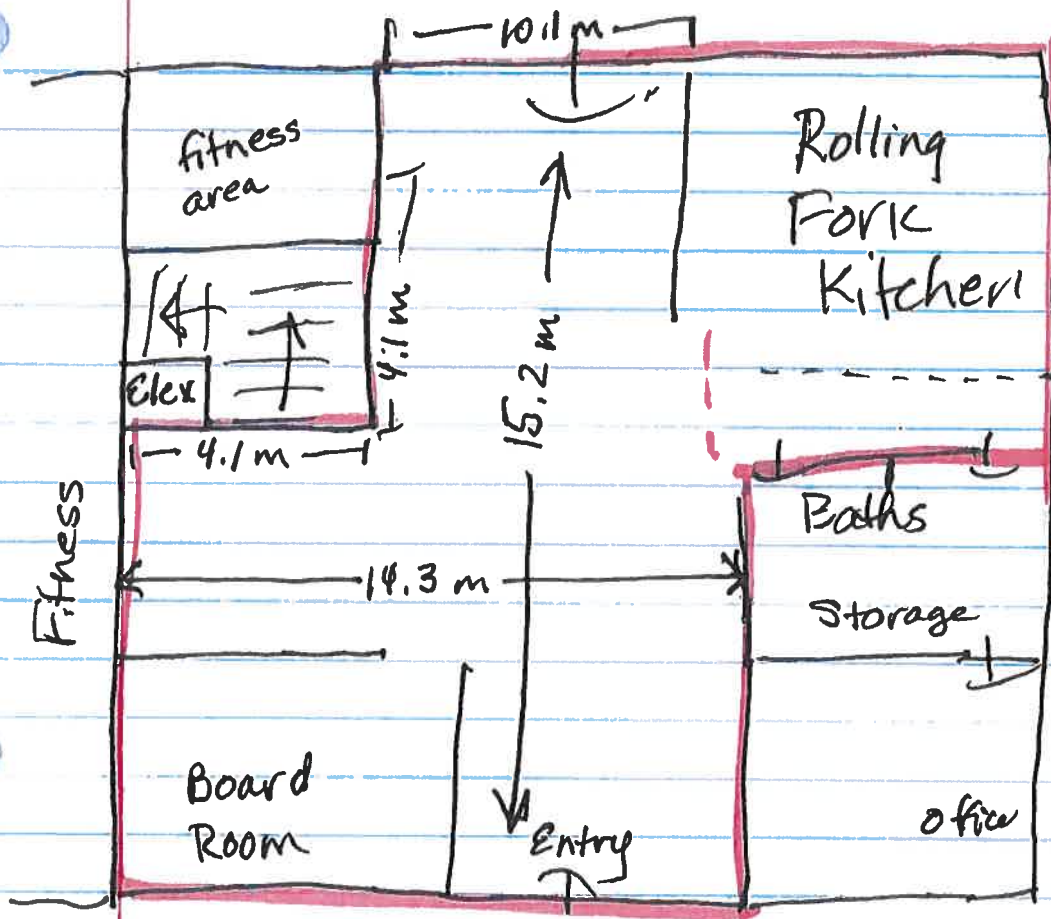 10.1 m
fitness
area
Rolling
Fork
Kitchen
4.1 m
15.2 m
Elex
4.1 m
Baths
Fitness
14.3 m
Storage
Board
Room
Entry
Office